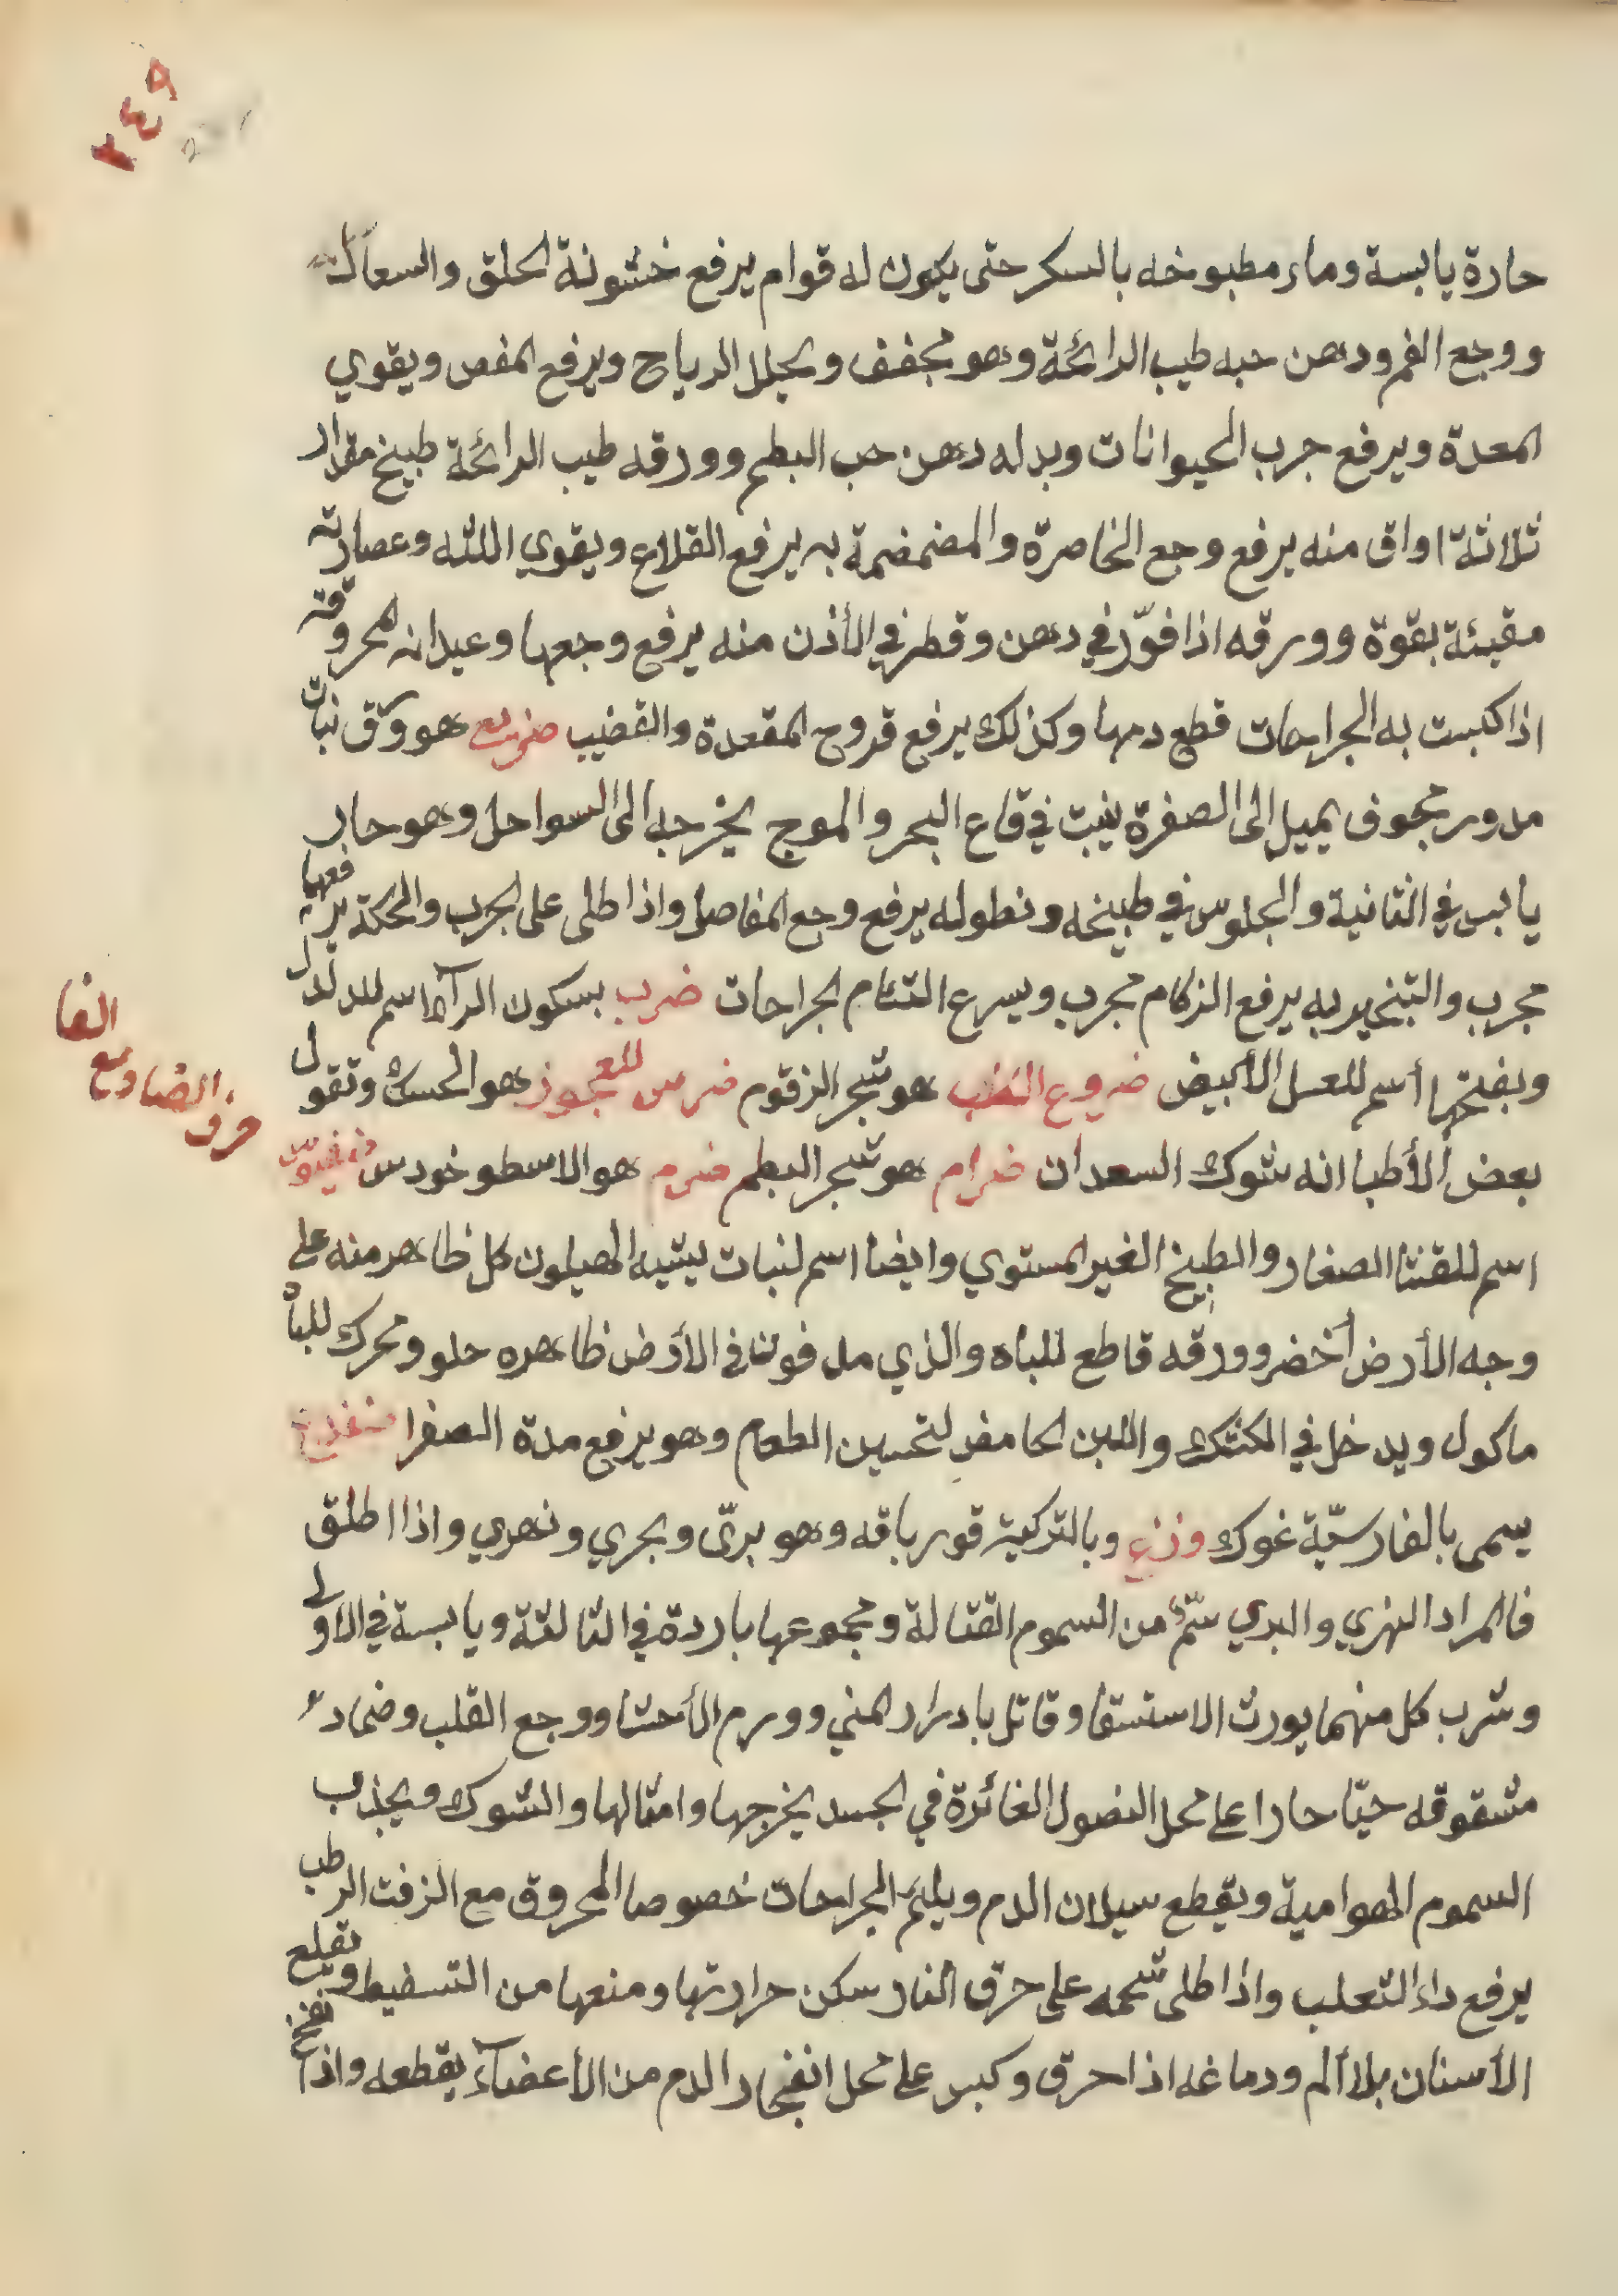 ٢٤٩
حارة يابسة وماء مطبوخه بالسكر حتى يكون له قوام يرفع خشونة الحلق والسعال
ووجع الفم ودهن حبه طيب الرائحة وهو مجفف ويحلل الرياح ويرفع المغص ويقوي
المعدة ويرفع جرب الحيوانات وبدله دهن حب البطم وورقه طيب الرائحة طبيخ مقدار
ثلاثة اواق منه يرفع وجع الخاصرة والمضمضة به يرفع القلاع ويقوي اللثه وعصارته
مقيئة بقوة وورقه اذا فوّر في دهن وقطر في الأذن منه يرفع وجعها وعيدانه المحروقه
اذا كبست به الجراحات قطع دمها وكذلك يرفع قروح المقعدة والقضيب ضريع هو ورق نبات
مدور مجوف يميل الى الصفرة ينبت في قاع البحر والموج يخرجه الى السواحل وهو حار
يابس في الثانية والجلوس في طبيخه ونطوله يرفع وجع المفاصل واذا طلى على الجرب والحكة يرفعها
مجرب والتبخير به يرفع الزكام مجرب ويسرع التئام الجراحات ضرب بسكون الرآء اسم للدلدل
وبفتحها أسم للعسل الأبيض ضروع الكلب هو شجر الزقوم ضرس العجوز هو الحسك وتقول
بعض الأطبا انه شوك السعدان ضرام هو شجر البطم ضرم هو الاسطوخودس ضغبوس
اسم للقثا الصغار والطبيخ الغير المستوي وايضا اسم لنبات يشبه الهيلون كل ظاهر منه على
وجه الأرض أخضر وورقه قاطع للباه والذي مدفونا في الأرض ظاهره حلو ومحرك للباه
ماكول ويدخل في الكشك واللبن الحامض لتحسين الطعام وهو يرفع مدة الصفرا ضفدع
يسمى بالفارسيّة غوك وزغ وبالتركية قورباقه وهو برّى وبحري ونهري واذا اطلق
فالمراد النهري والبري سمّ من السموم القتالة ومجموعها باردة في الثالثة ويابسة في الاولى
وشرب كل منهما يورث الاستسقا وقاتل بادرار المني وورم الأحشا ووجع القلب وضماد
مشقوقه حيّا حارا على محل النصول الغائرة في الجسد يخرجها وامثالها والشوك ويجذب
السموم الهوامية ويقطع سيلان الدم ويليم الجراحات خصوصا المحروق مع الزفت الرطب
يرفع داء الثعلب واذا طلى شحمه على حرق النار سكن حرارتها ومنعها من التسفيط ويقلع
الأسنان بلا ألم ودماغه اذا احرق وكبس على محل انفجار الدم من الأعضآء يقطعه واذا نفخ
الضاد مع
الفا